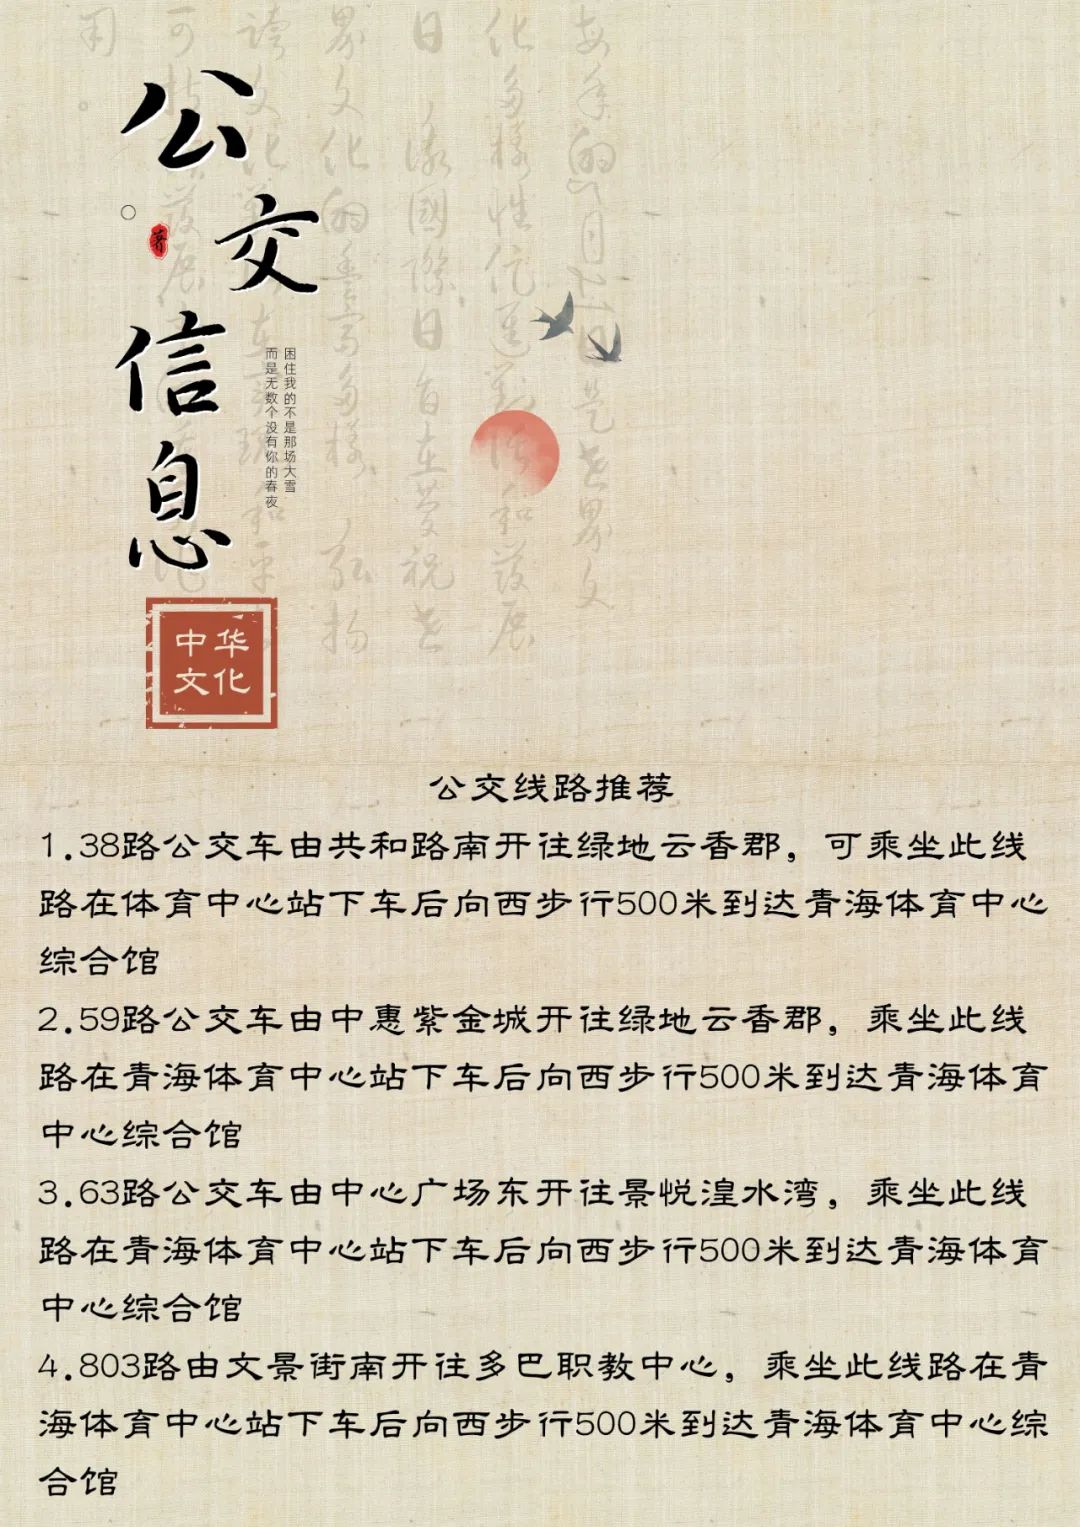 公交
信息
困住我的不是那场大雪
而是无数个没有你的春夜
中华
文化
公交线路推荐
1.38路公交车由共和路南开往绿地云香郡，可乘坐此线
路在体育中心站下车后向西步行500米到达青海体育中心
综合馆
2.59路公交车由中惠紫金城开往绿地云香郡，乘坐此线
路在青海体育中心站下车后向西步行500米到达青海体育
中心综合馆
3.63路公交车由中心广场东开往景悦湟水湾，乘坐此线
路在青海体育中心站下车后向西步行500米到达青海体育
中心综合馆
4.803路由文景街南开往多巴职教中心，乘坐此线路在青
海体育中心站下车后向西步行500米到达青海体育中心综
合馆